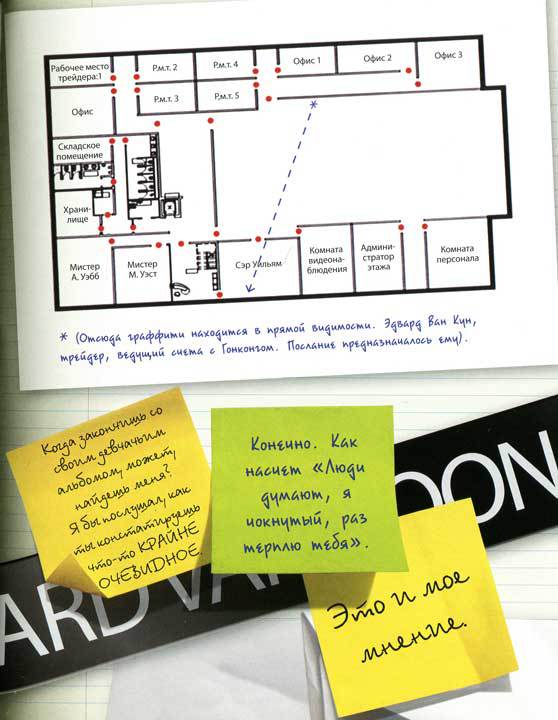 Рабочее место
трейдера:1
Р.м.т. 2
Р.м.т. 4
Офис 1
Офис 2
Офис 3
Р.м.т. 3
Р.м.т. 5
Офис
Складское
помещение
Храни-
лище
Мистер
А. Уэбб
Мистер
М. Уэст
Сэр Уильям
Комната
видеона-
блюдения
Админи-
стратор
этажа
Комната
персонала
*
* (Отсюда граффити находится в прямой видимости. Эдвард Ван Кун,
трейдер, ведущий счета с Гонконгом. Послание предназначалось ему).
Когда закончишь со
своим девчачьим
альбомом, может,
найдешь меня?
Я бы послушал, как
ты констатируешь
что-то КРАЙНЕ
ОЧЕВИДНОЕ.
Конечно. Как
насчет «Люди
думают, я
чокнутый, раз
терплю тебя».
Это и мое
мнение.
ARD VA
OON